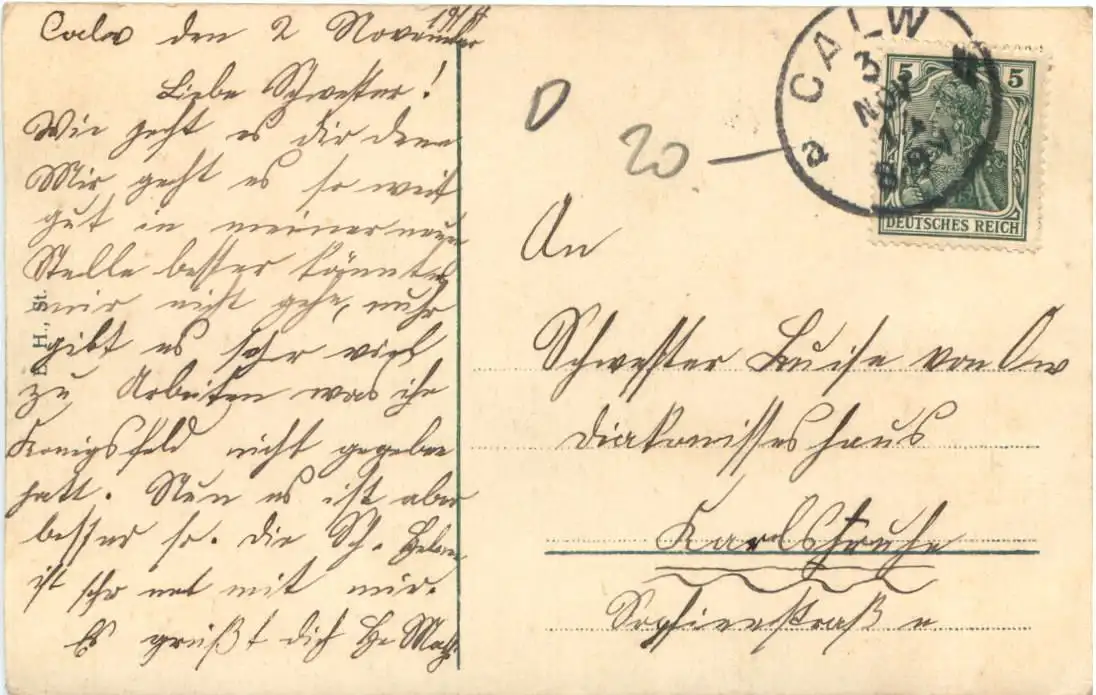 Calw den 2 November
Liebe Schwester!
Wie geht es dir denn
Mir geht es so weit
gut in meiner neuen
Stelle besser könnte es
mir nicht gehe, nuhr
gibt es sehr viel
zu Arbeiten was ihr
Königsfeld nicht gegeben
hatt. Nun es ist aber
besser so. die Sch.
ist sehr net mit mir.
Es grüßt dich
H., St.
D
20
a CALW
3
NOV
5 5
DEUTSCHES REICH
An
Schwester Luise von Ow
Diakonissenhaus
Karlsruhe
Sophienstraß